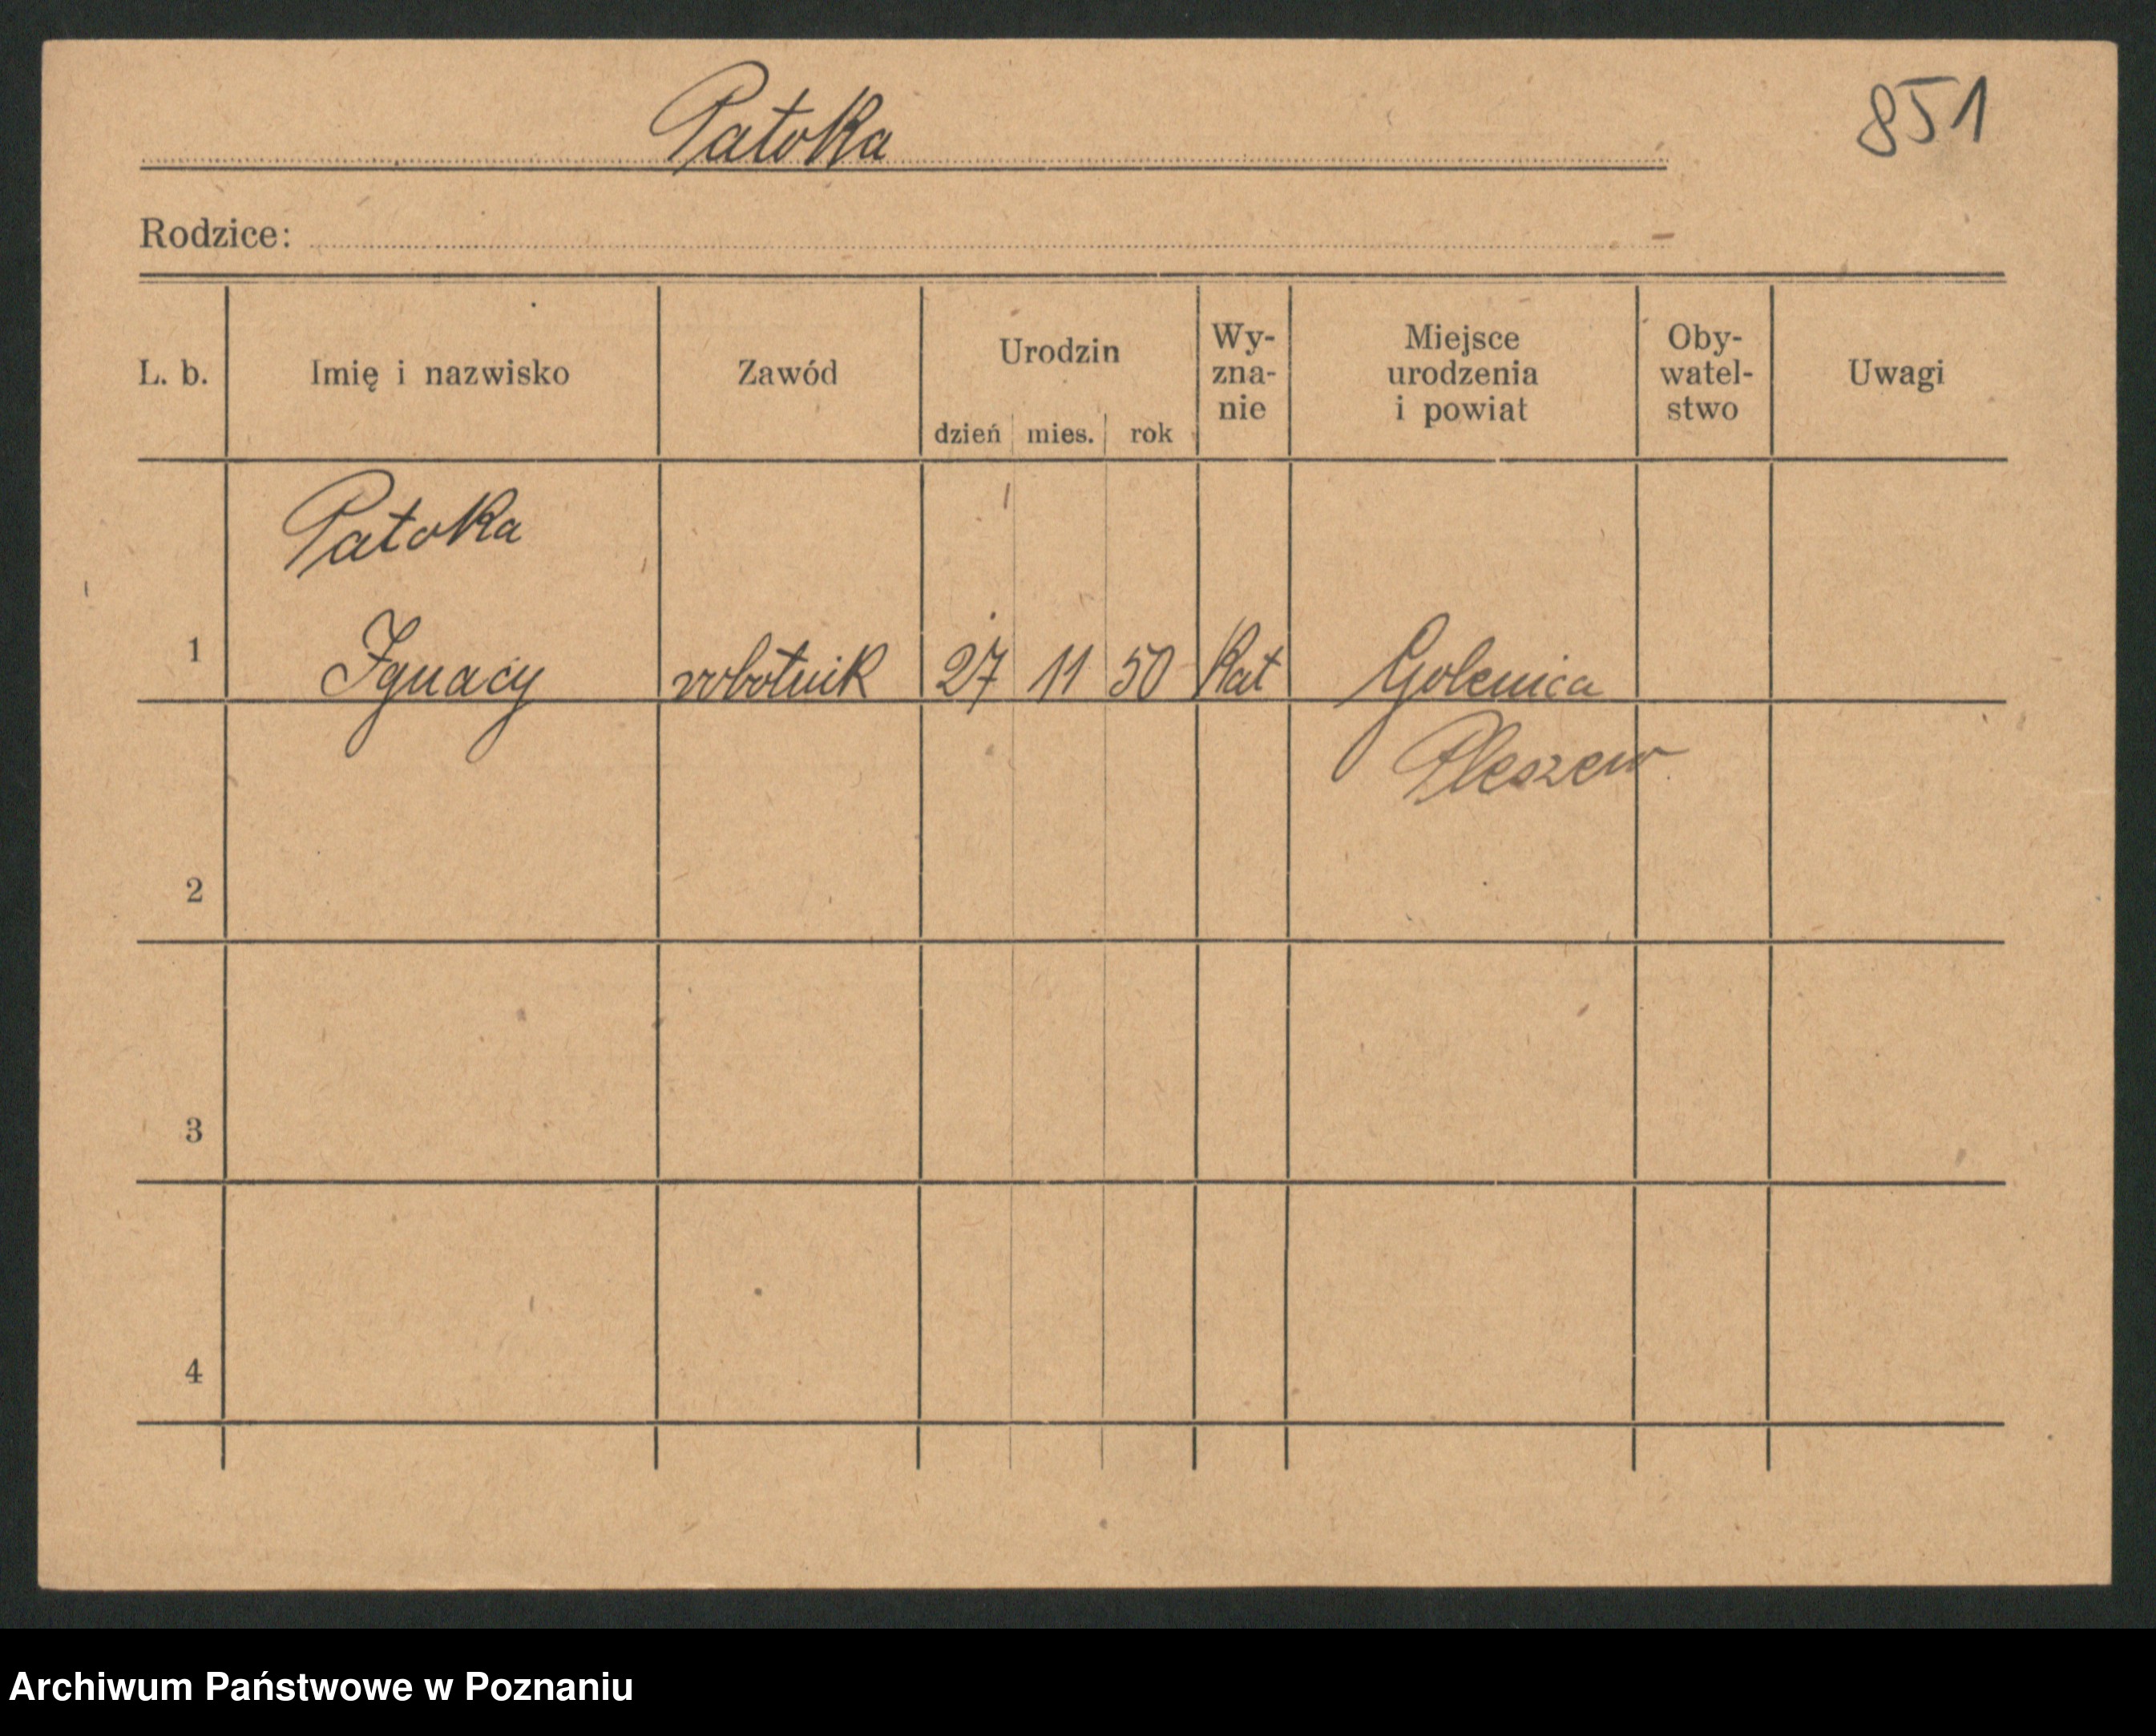 Patoka
851
Rodzice:
L. b. Imię i nazwisko Zawód Urodzin dzień mies. rok Wy-zna-nie Miejsce urodzenia i powiat Oby-watel-stwo Uwagi
Patoka
1 Ignacy robotnik 27 11 50 Kat Golenica
Pleszew
2
3
4
Archiwum Państwowe w Poznaniu